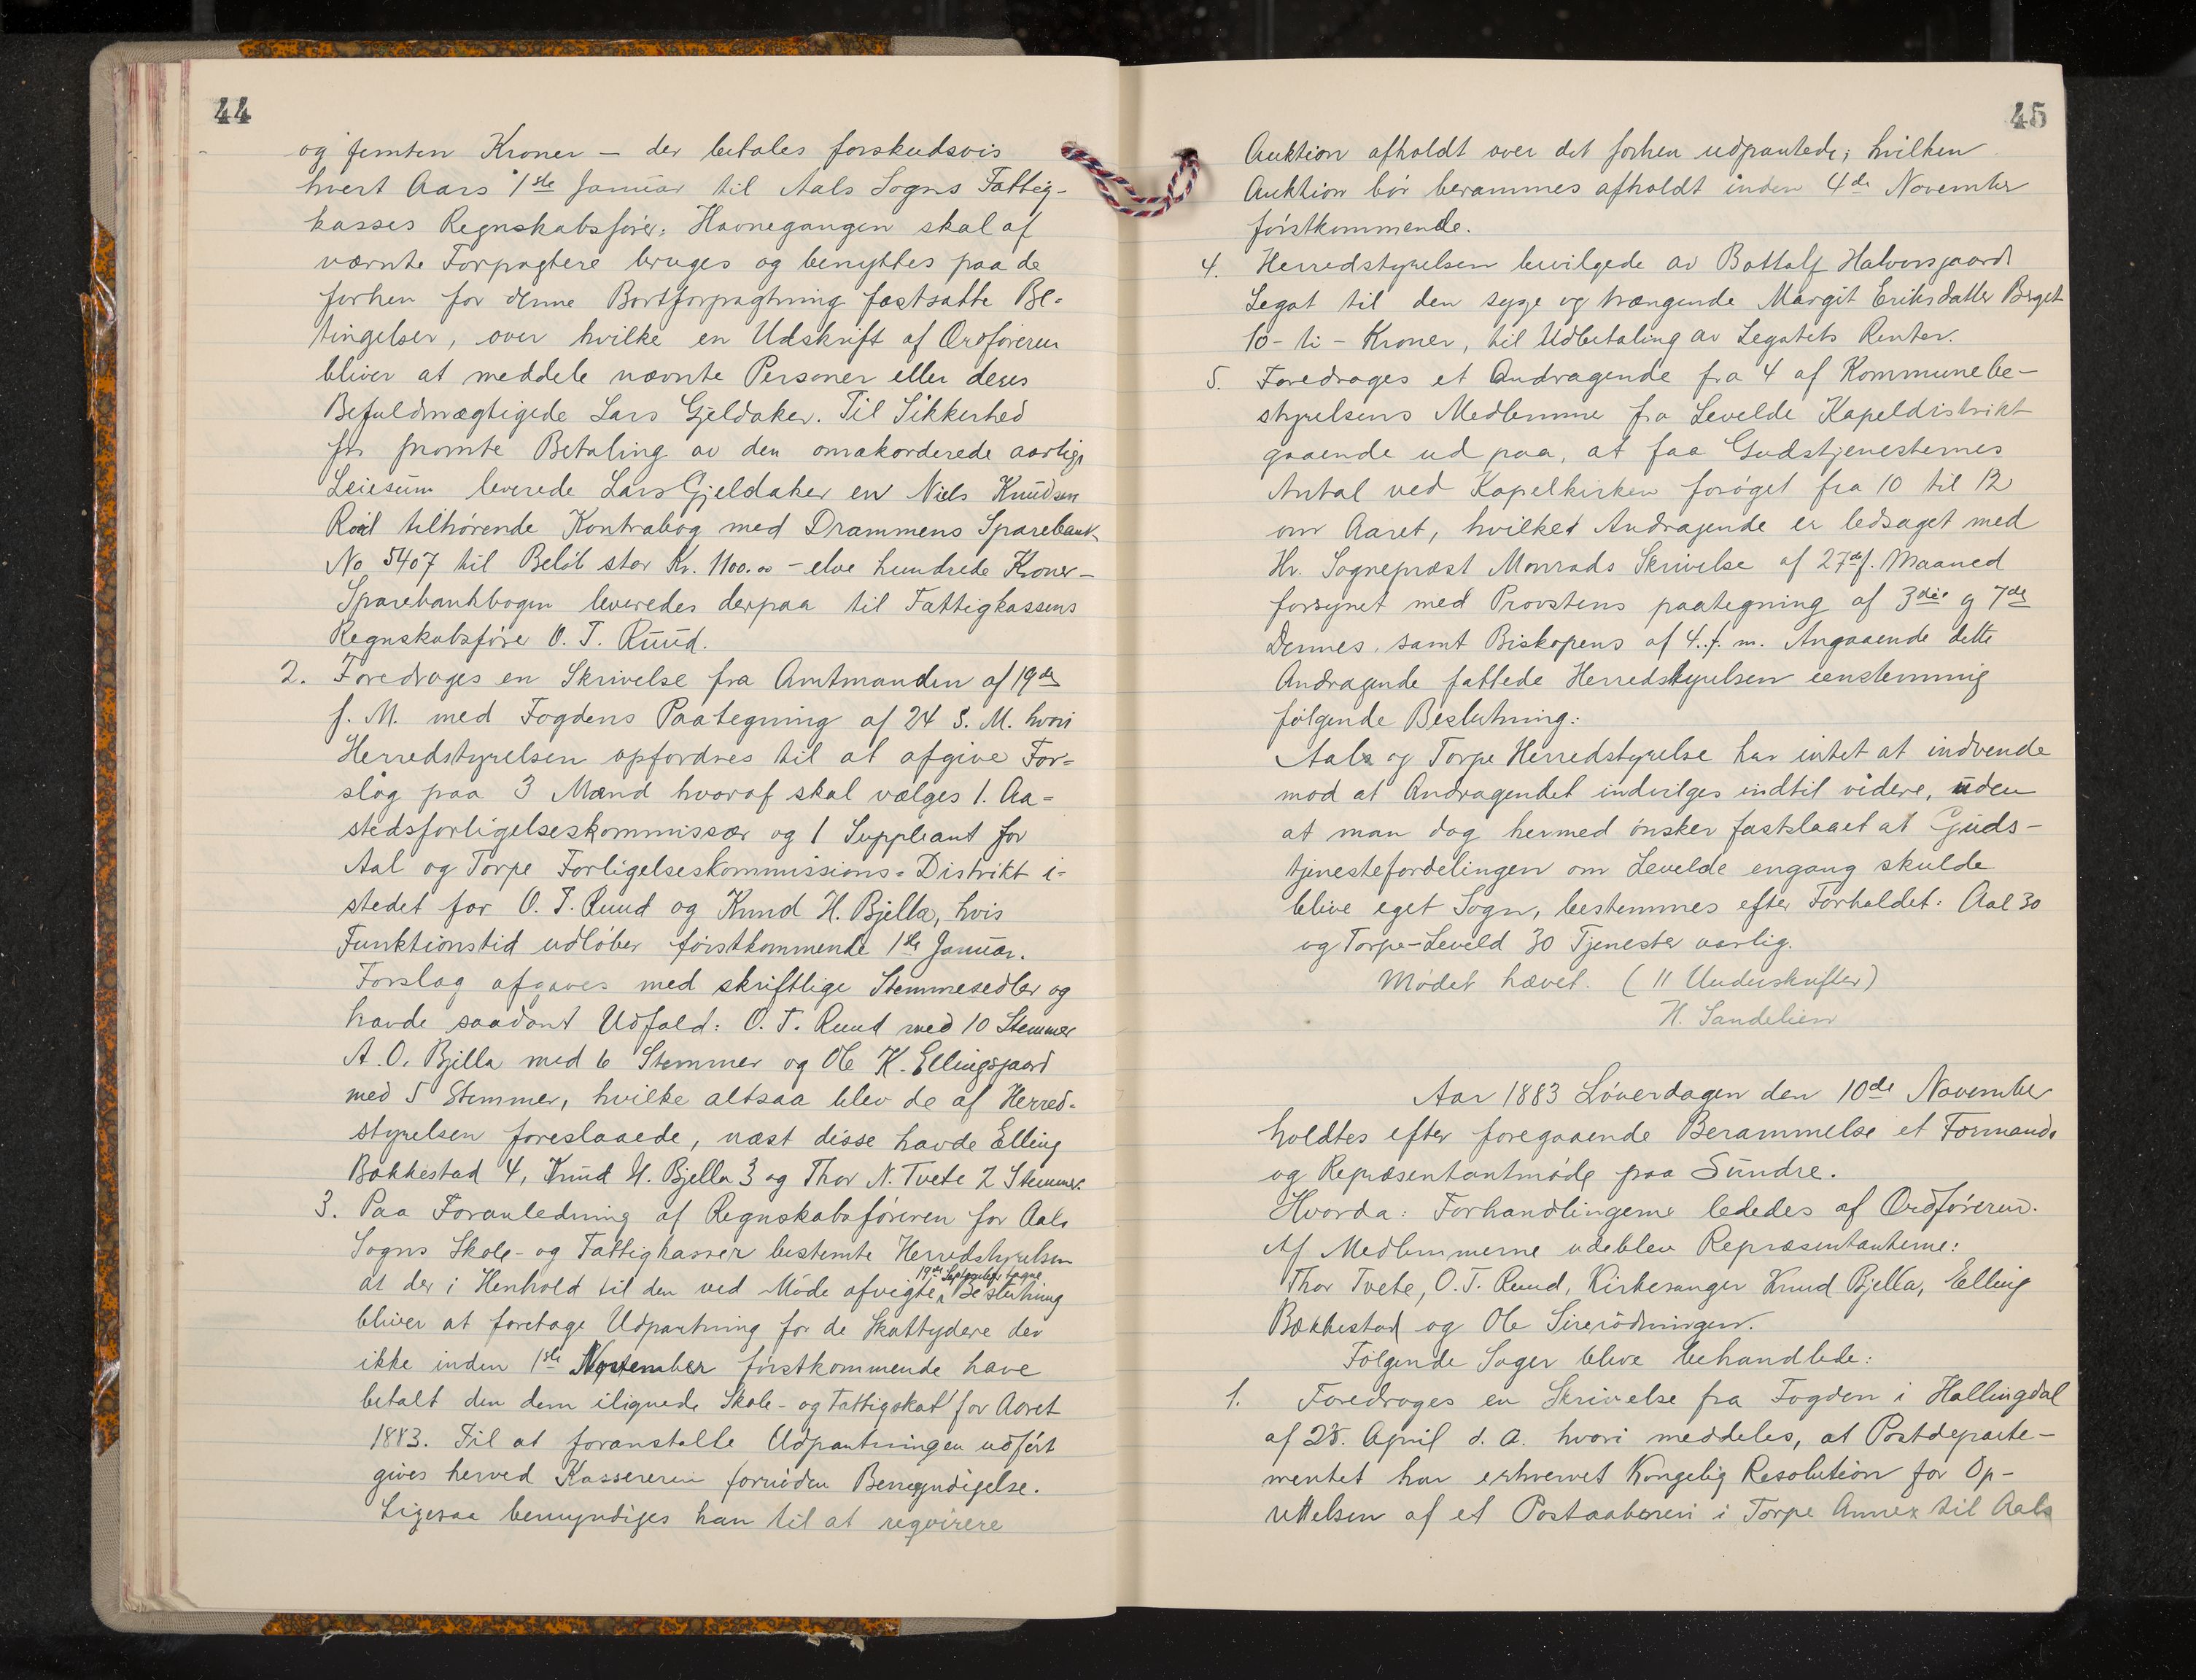 44
og femten Kroner — der betales forskudsvis
hvert Aars 1ste Januar til Aals Sogns Fattig-
kasses Regnskabsfører. Havnegangen skal af
nævnte Forpagtere bruges og benyttes paa de
forhen for denne Bortforpagtning fastsatte Be-
tingelser, over hvilke en Udskrift af Ordføreren
bliver at meddele nævnte Personer eller deres
Befuldmægtigede Lars Gjeldaker. Til Sikkerhed
for promte Betaling av den omakorderede aarlige
Leiesum leverede Lars Gjeldaker en Niels Knudsen
tilhørende Kontrabog med Drammens Sparebank
No 5407 til Beløb stor Kr. 1100.00 – elve hundrede Kroner –
Sparebankbogen leveredes derpaa til Fattigkassens
Regnskabsfører O. T. Ruud.
2. Foredroges en Skrivelse fra Amtmanden af 19de
f. M. med Fogdens Paategning af 24 s. M. hvori
Herredstyrelsen opfordres til at afgive For-
slag paa 3 Mænd hvoraf skal vælges 1. Aa-
stedsforligelseskommissær og 1 Suppleant for
Aal og Torpe Forligelseskommissions-Distrikt i-
stedet for O. T. Ruud og Knud H. Bjella, hvis
Funktionstid udløber førstkommende 1ste Januar.
Forslag afgaves med skriftlige Stemmesedler og
havde saadant Udfald: O. T. Ruud med 10 Stemmer
A. O. Bjella med 6 Stemmer og Ole K. Ellingsgaard
med 5 Stemmer, hvilke altsaa blev de af Herred-
styrelsen foreslaaede, næst disse havde Elling
Bakkestad 4, Knud H. Bjella 3 og Thor N. Tvete 2 Stemmer.
3. Paa Foranledning af Regnskabsføreren for Aals
Sogns Skole- og Fattigkasser bestemte Herredstyrelsen
19de September tagne
at der i Henhold til den ved Møde afvigte Beslutning
bliver at foretage Udpantning for de Skattydere der
ikke inden 1ste November førstkommende have
betalt den dem ilignede Skole- og Fattigskat for Aaret
1883. Til at foranstalte Udpantningen udført
gives herved Kassereren fornøden Bemyndigelse.
Ligesaa bemyndiges han til at reqvirere
45
Auktion afholdt over det forhen udpantede; hvilken
Auktion bør berammes afholdt inden 4de November
førstkommende.
4. Herredstyrelsen bevilgede av Bottolf Halvorsgaards
Legat til den syge og trængende Margit Eriksdatter Berget
10 - ti - Kroner, til Udbetaling av Legatets Renter.
5. Foredroges et Andragende fra 4 af Kommunebe-
styrelsens Medlemmer fra Levelde Kapeldistrikt
gaaende ud paa, at faa Gudstjenesternes
Antal ved Kapelkirken forøget fra 10 til 12
om Aaret, hvilket Andragende er ledsaget med
Hr. Sognepræst Monrads Skrivelse af 27de f. Maaned
forsynet med Provstens paategning af 3die og 7de
Dennes, samt Biskopens af 4. f. m. Angaaende dette
Andragende fattede Herredstyrelsen eenstemmig
følgende Beslutning:
Aals og Torpe Herredstyrelse har intet at indvende
mod at Andragendet indvilges indtil videre, uden
at man dog hermed ønsker fastslaaet at Guds-
tjenestefordelingen om Levelde engang skulde
blive eget Sogn, bestemmes efter Forholdet: Aal 30
og Torpe-Leveld 30 Tjenester aarlig.
Mødet hævet. (11 Underskrifter)
H. Sandelien
Aar 1883 Løverdagen den 10de November
holdtes efter foregaaende Berammelse et Formands
og Repræsentantmøde paa Sundre.
Hvorda: Forhandlingerne lededes af Ordføreren.
Af Medlemmerne udeblev Repræsentanterne:
Thor Tvete, O. T. Ruud, Kirkesanger Knud Bjella, Elling
Bækkestad og Ole
Følgende Sager blive behandlede:
1. Foredroges en Skrivelse fra Fogden i Hallingdal
af 28. April d. A. hvori meddeles, at Postdeparte-
mentet har erhvervet Kongelig Resolution for Op-
rettelsen af et Postaaberi i Torpe Annex til Aals